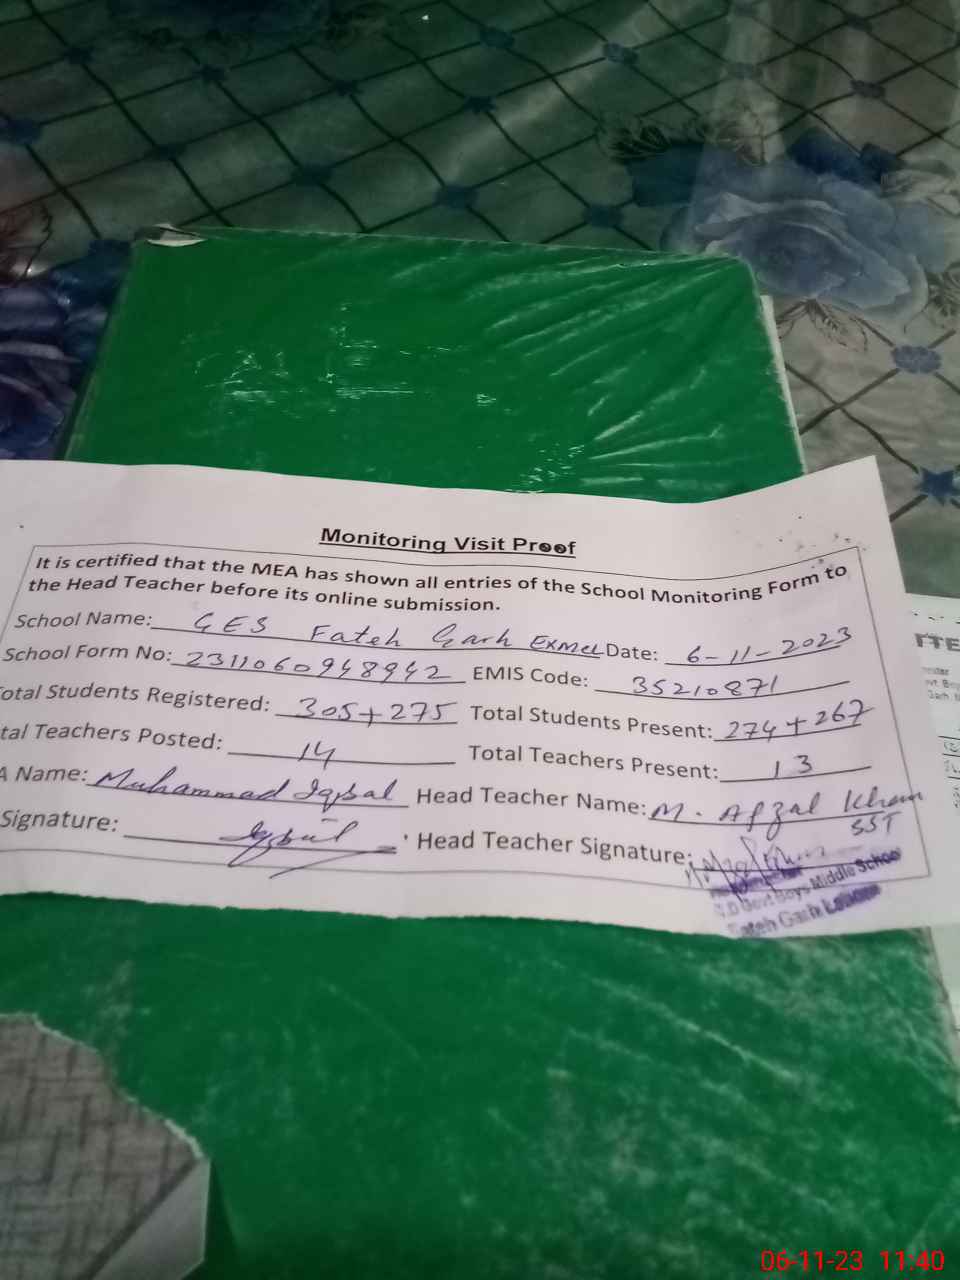 Monitoring Visit Proof
It is certified that the MEA has shown all entries of the School Monitoring Form to
the Head Teacher before its online submission.
School Name: GES Fateh Garh Exmel Date: 6-11-2023
School Form No: 2311060948942 EMIS Code: 35210871
otal Students Registered: 305+275 Total Students Present: 274+267
tal Teachers Posted: 14 Total Teachers Present: 13
A Name: Muhammad Iqbal Head Teacher Name: M. Afzal Khan
SST
Signature: Iqbal Head Teacher Signature:
Govt Boys Middle School
Fateh Garh Lahore
06-11-23 11:40